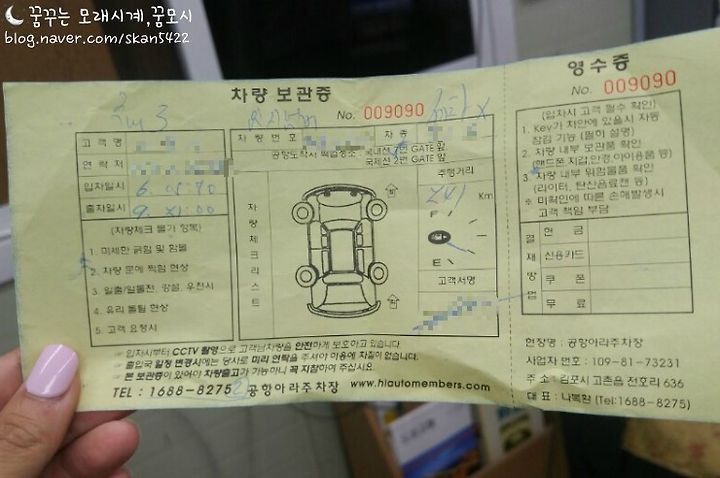 꿈꾸는 모래시계,꿈모시
blog.naver.com/skan5422
차량 보관증
No. 009090
고객명
차량번호
차종
연락처
공항도착시 픽업장소 : 국내선 1번 GATE 앞
국제선 2번 GATE 앞
입차일시 6. 05:40
출차일시 9. 21:00
주행거리
241 Km
(차량체크 불가 항목)
1. 미세한 긁힘 및 함몰
2. 차량 문에 찍힘 현상
3. 일출/일몰전, 강설, 우천시
4. 유리 돌튐 현상
5. 고객 요청시
차량체크리스트
앞
뒤
F
E
고객서명
☞ 입차시부터 CCTV 촬영으로 고객님차량을 안전하게 보호하고 있습니다.
☞ 출입국 일정 변경시에는 당사로 미리 연락을 주셔야 이용에 차질이 없습니다.
☞ 본 보관증이 있어야 차량출고가 가능하니 꼭 지참하여 주십시요.
TEL : 1688-8275 공항아라주차장 www.hiautomembers.com
영수증
No. 009090
(입차시 고객 필수 확인)
1. Key가 차안에 있을시 자동
잠김 기능 (필히 설명)
2. 차량 내부 보관품 확인
(핸드폰,지갑,안경,아이용품 등)
3. 차량 내부 위험물품 확인
(라이터, 탄산음료캔 등)
※ 미확인에 따른 손해발생시
고객 책임 부담
결재방법
현금
신용카드
쿠폰
무료
현장명 : 공항아라주차장
사업자 번호 : 109-81-73231
주 소 : 김포시 고촌읍 전호리 636
대 표 : 나복환 (Tel:1688-8275)